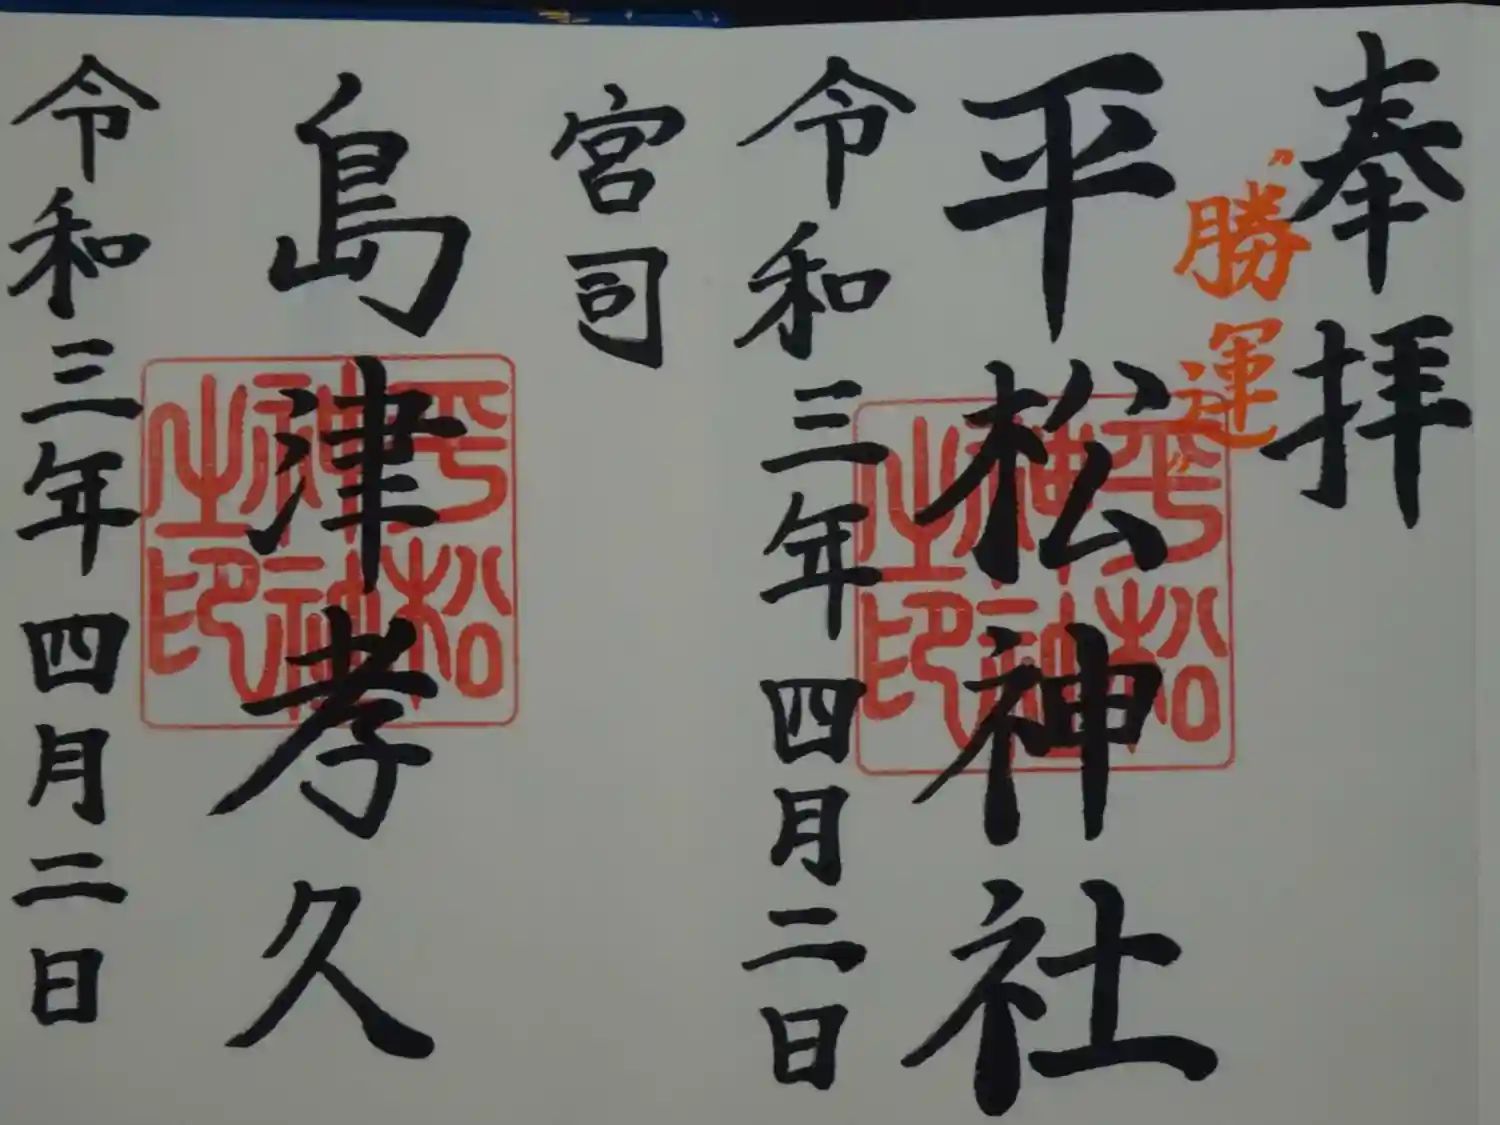 奉拝
"勝運"
平松神社
平松神社之印
令和三年四月二日
宮司
島津孝久
平松神社之印
令和三年四月二日